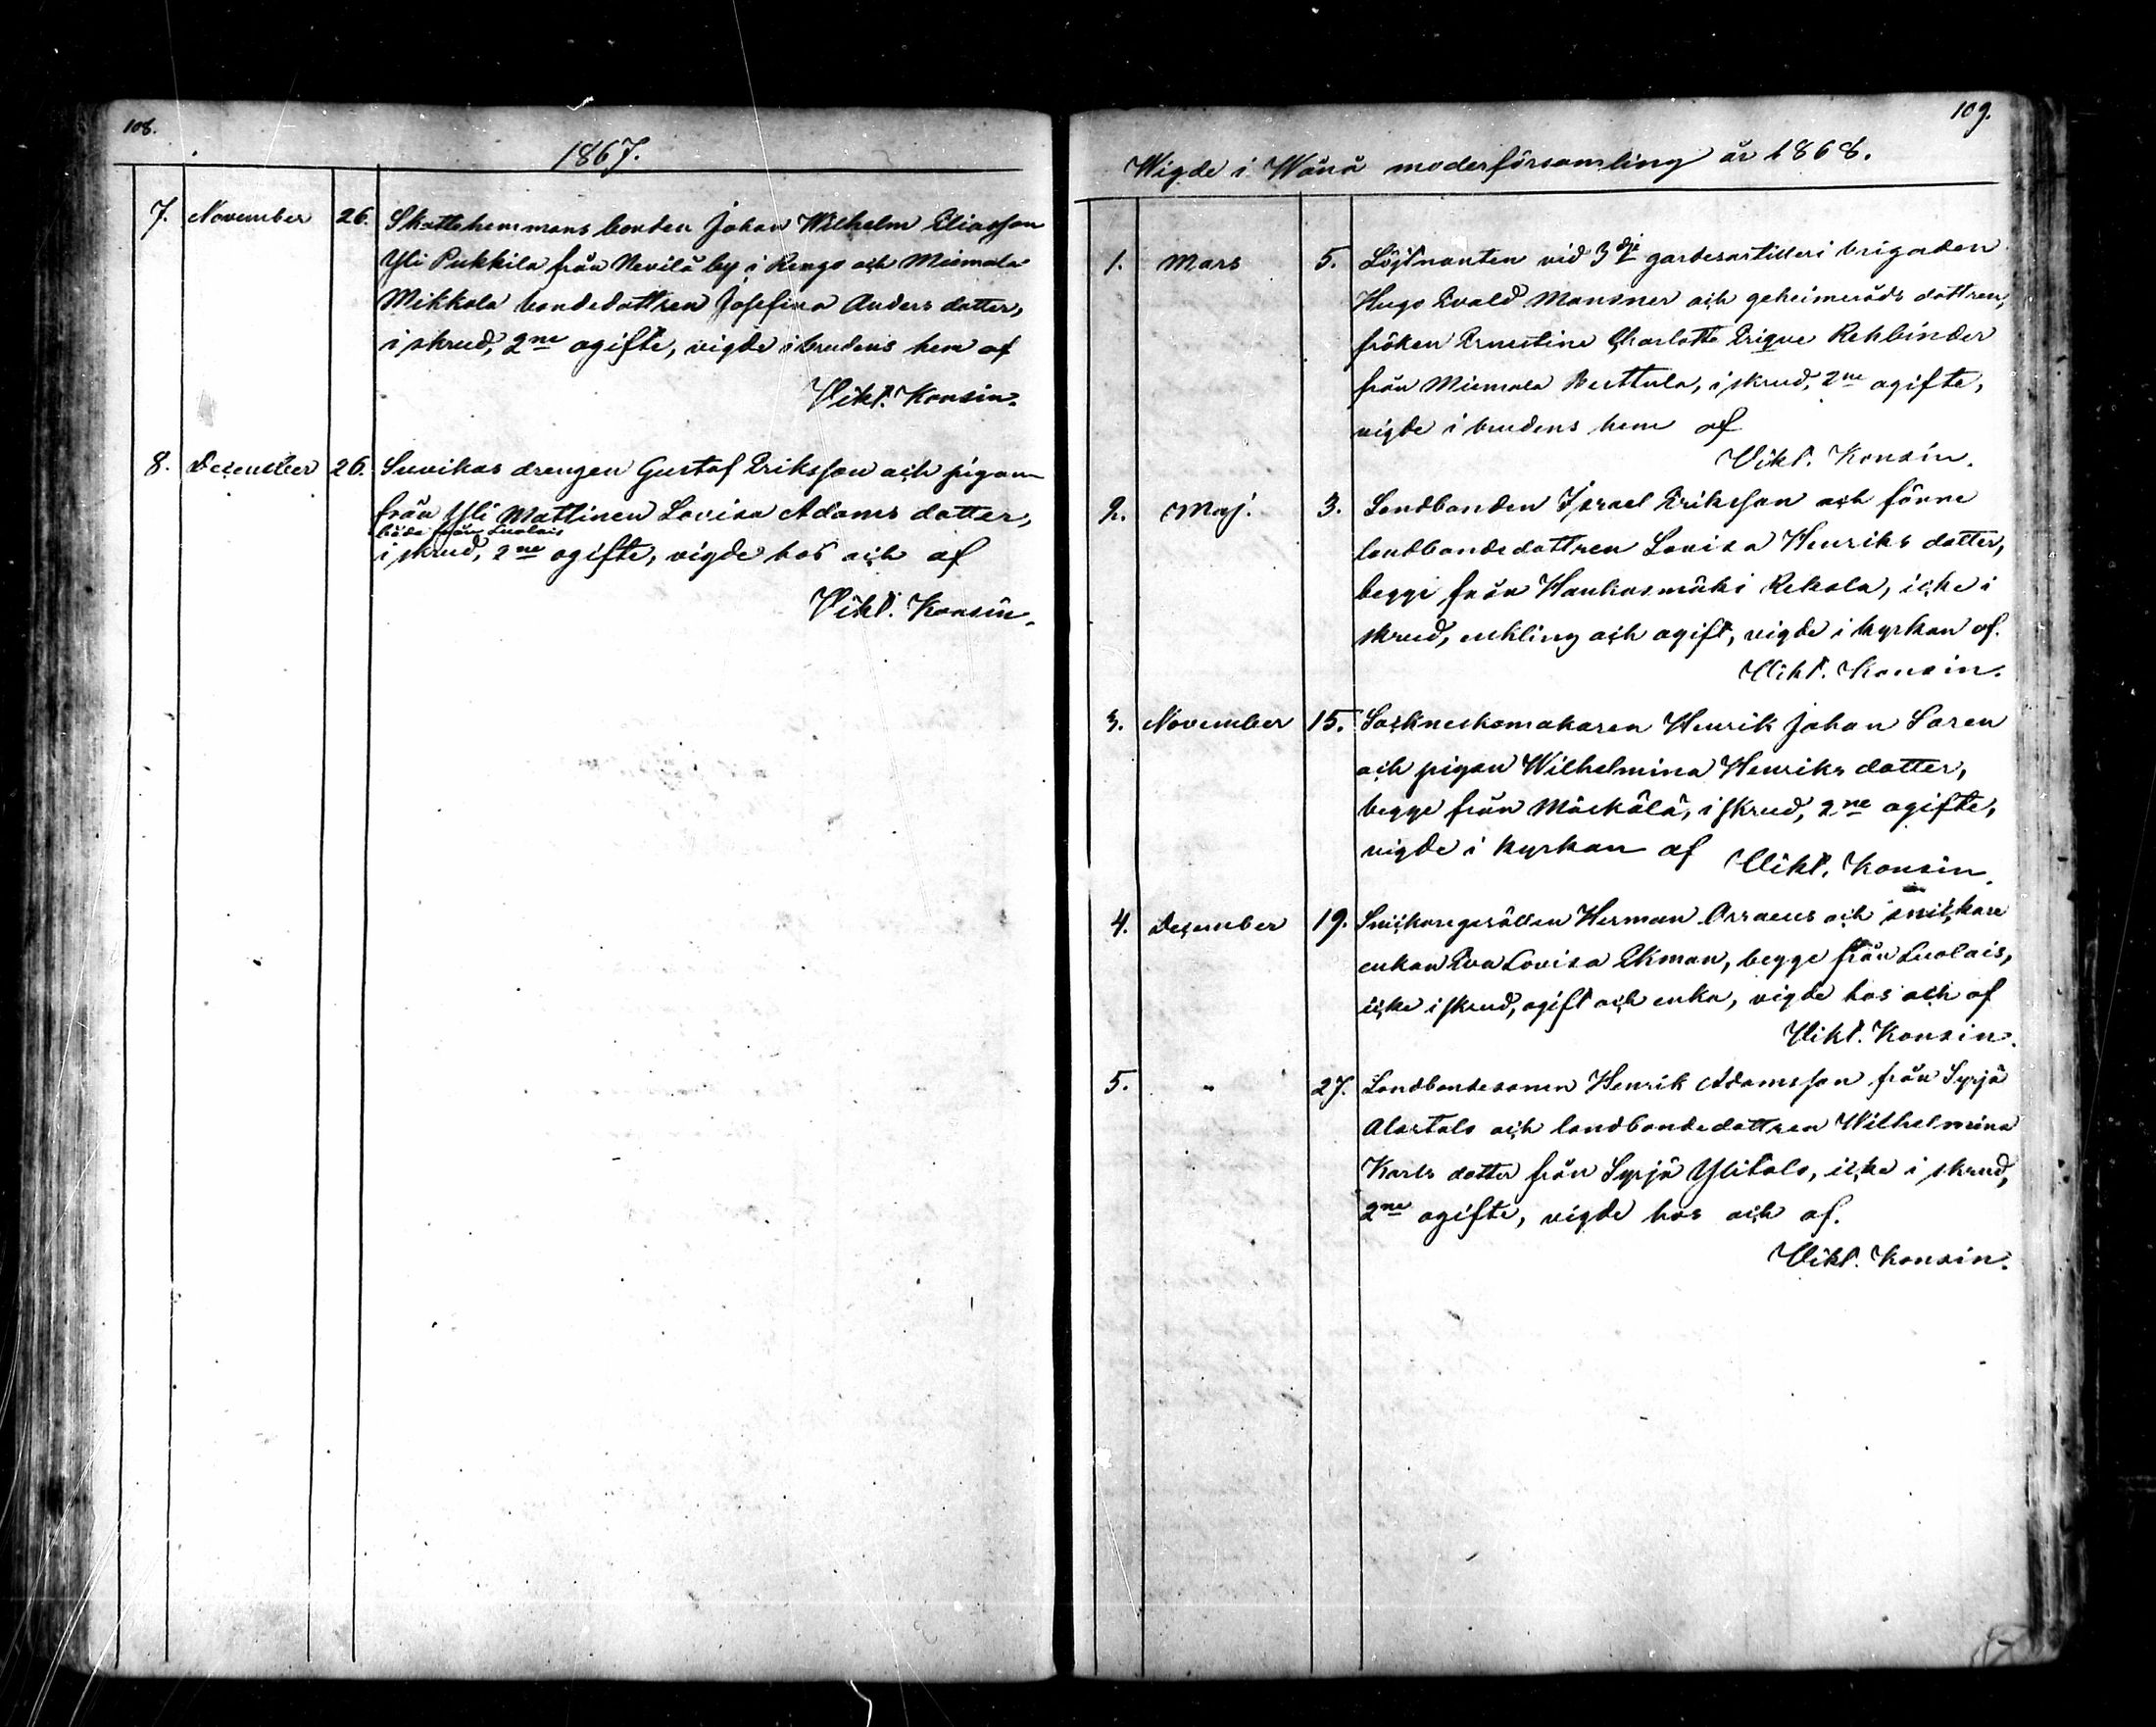 108.
1867.
7. November 26. Skattehemmans bonden Johan Wilhelm Eliasson
Yli Pukkila från Nevilä by i Rengo och Miemala
Mikkola bondedottren Josefina Anders dotter,
i skrud, 2ne ogifte, vigde i brudens hem af
Vikt. Konsin.
8. December 26. Suvikas drengen Gustaf Eriksson och pigan
från Yli Mattinen Lovisa Adams dotter,
båda från Luolais
i skrud, 2ne ogifte, vigde hos och af
Vikt. Konsin.
109.
Wigde i Wånå moderförsamling år 1868.
1. Mars 5. Löjtnanten vid 3dje gardesartilleri brigaden
Hugo Evald Mansner och geheimeråds dottren,
fröken Ernestine Charlotte Erique Rehbinder
från Miemala Perttula, i skrud, 2ne ogifte,
vigde i brudens hem af
Vikt. Konsin.
2. Maj. 3. Landbonden Israel Eriksson och förre
landbondedottren Lovisa Henriks dotter,
begge från Haukasmäki Rekola, icke i
skrud, enkling och ogift, vigde i kyrkan af.
Vikt. Konsin.
3. November 15. Sockneskomakaren Henrik Johan Saren
och pigan Wilhelmina Henriks dotter,
begge från Mäskälä, i skrud, 2ne ogifte,
vigde i kyrkan af Vikt. Konsin.
4. December 19. Snickaregesällen Herman Arraeus och snickare
enkan Eva Lovisa Ekman, begge från Luolais,
icke i skrud, ogift och enka, vigde hos och af
Vikt. Konsin.
5. " 27. Landbondesonen Henrik Adamsson från Syrjä
Alastalo och landbondedottren Wilhelmina
Karls dotter från Syrjä Ylitalo, icke i skrud,
2ne ogifte, vigde hos och af.
Vikt. Konsin.